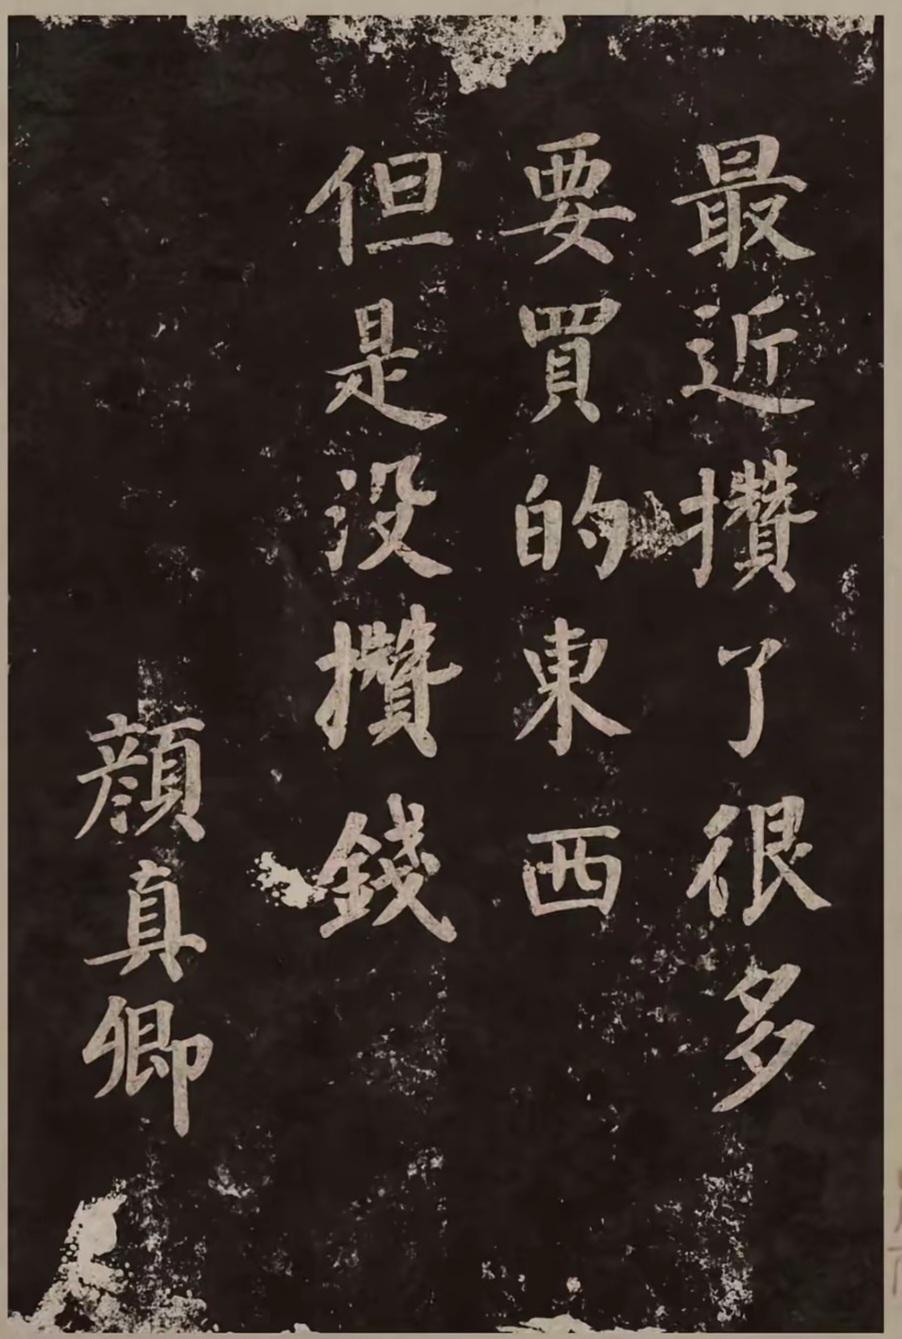 最近攢了很多
要買的東西
但是没攢錢
顔真卿